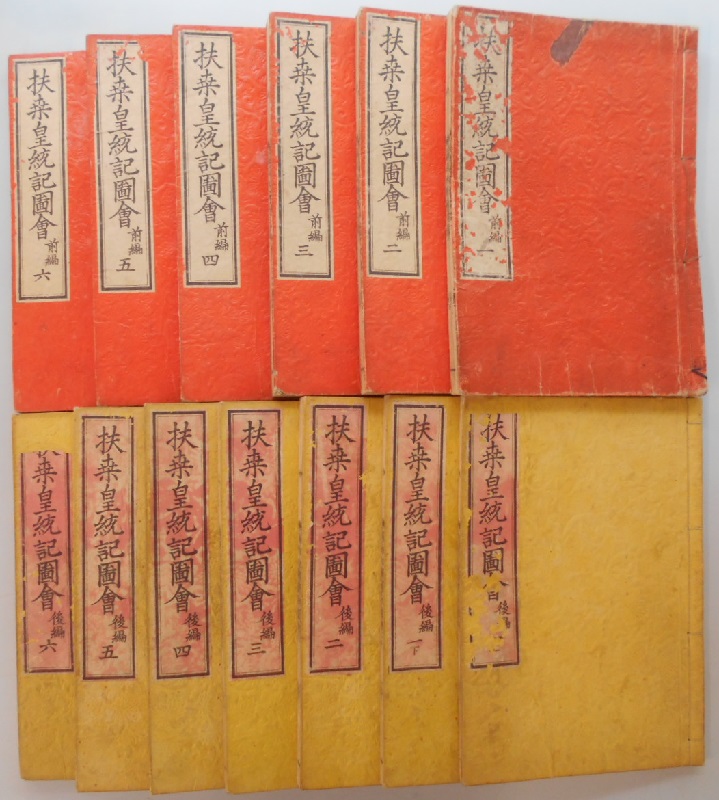 扶桒皇統記圖會 前編 一
扶桒皇統記圖會 前編 二
扶桒皇統記圖會 前編 三
扶桒皇統記圖會 前編 四
扶桒皇統記圖會 前編 五
扶桒皇統記圖會 前編 六
扶桒皇統記圖會 後編
扶桒皇統記圖會 後編 一下
扶桒皇統記圖會 後編 二
扶桒皇統記圖會 後編 三
扶桒皇統記圖會 後編 四
扶桒皇統記圖會 後編 五
扶桒皇統記圖會 後編 六